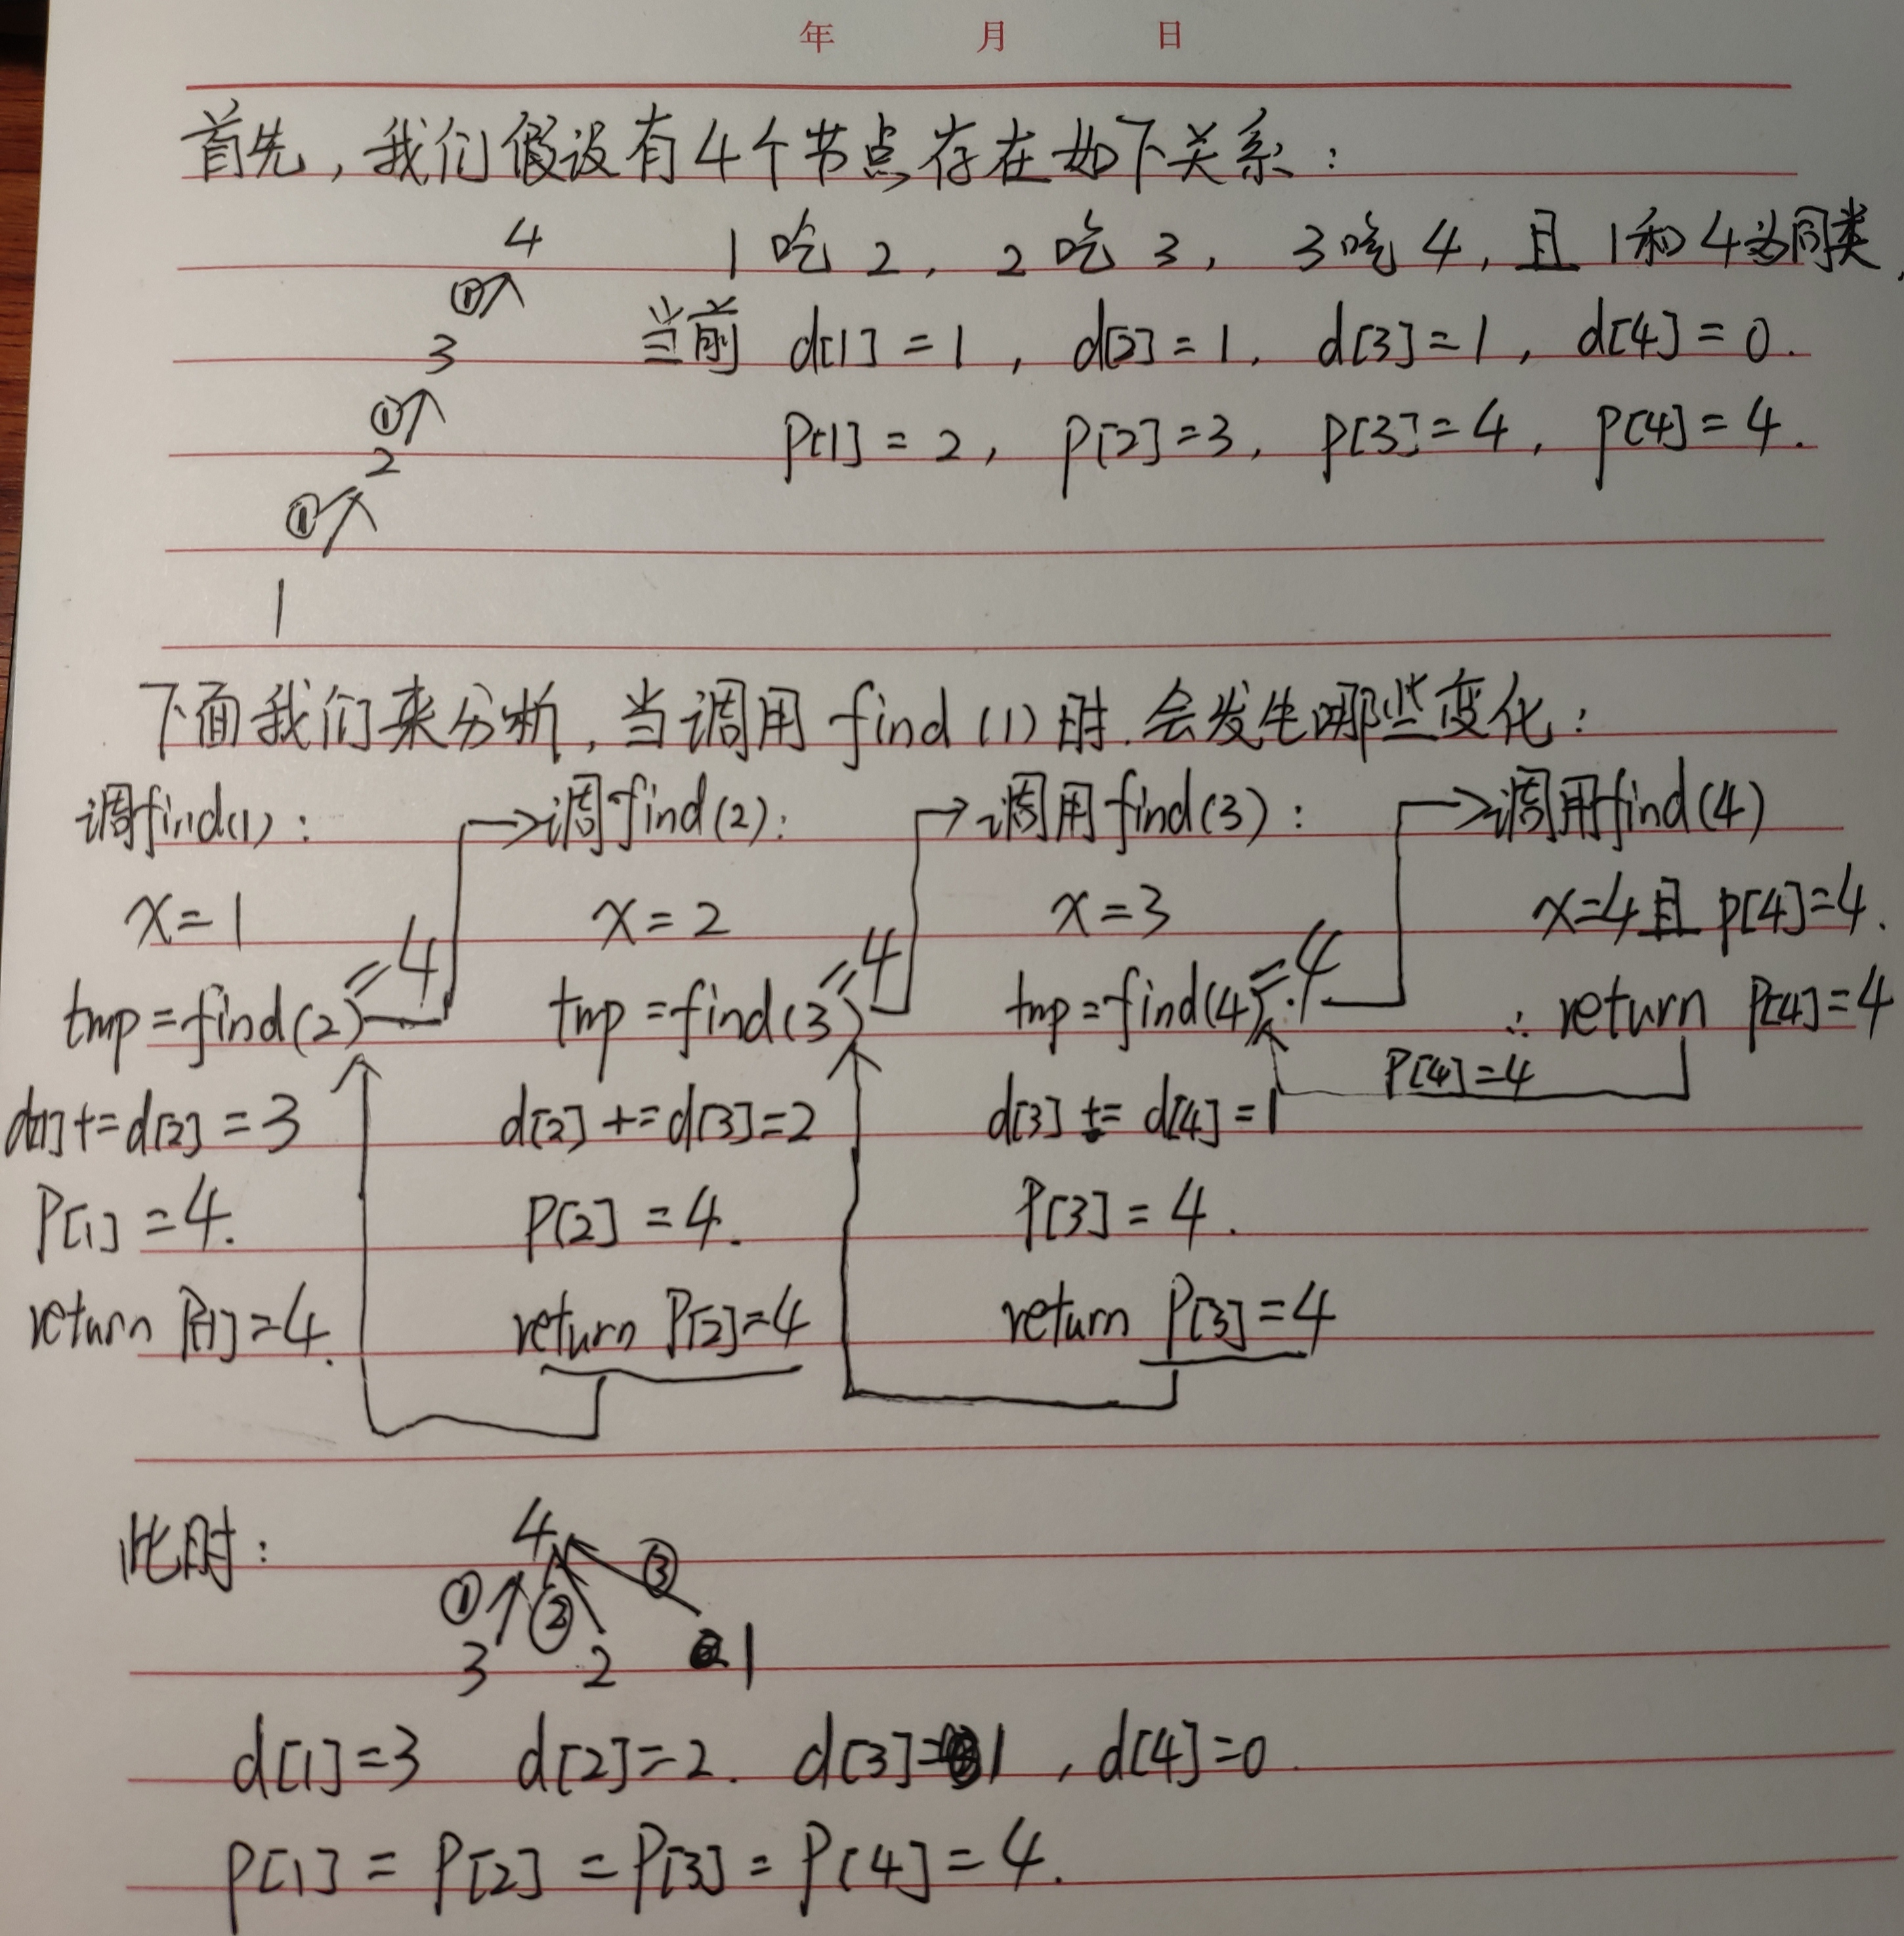 年 月 日
首先，我们假设有4个节点存在如下关系：
4 1吃2，2吃3，3吃4，且1和4为同类，
①
3 当前 d[1]=1，d[2]=1，d[3]=1，d[4]=0.
①
2 p[1]=2，p[2]=3，p[3]=4，p[4]=4.
①
1
下面我们来分析，当调用find(1)时，会发生哪些变化：
调find(1)： 调find(2)： 调用find(3)： 调用find(4)
x=1 x=2 x=3 x=4且p[4]=4.
tmp=find(2)=4 tmp=find(3)=4 tmp=find(4)=4 ∴ return p[4]=4
P[4]=4
d[1]+=d[2]=3 d[2]+=d[3]=2 d[3]+=d[4]=1
P[1]=4. P[2]=4. P[3]=4.
return P[1]=4. return P[2]=4 return P[3]=4
此时：
4
① ② ③
3 2 1
d[1]=3 d[2]=2. d[3]=1，d[4]=0.
p[1]=p[2]=p[3]=p[4]=4.